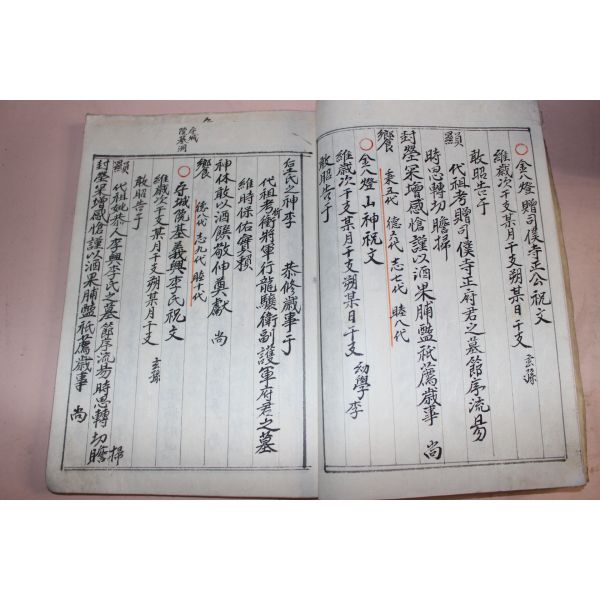 金八燈 贈司僕寺正公祝文
維歲次干支某月干支朔某日干支 玄孫
敢昭告于
顯 代祖考贈司僕寺正府君之墓節序流易
時思轉切瞻掃
封塋采增感愴謹以酒果脯醢祗薦歲事 尚
饗 五代 德六代 志七代 睦八代
金八燈山神祝文
維歲次干支某月干支朔某日干支 幼學李
敢昭告于
后土之神李 恭修歲事于
代祖考衛將軍行龍驤衛副護軍府君之墓
維時保佑實賴
神休敢以酒饌敬伸奠獻 尚
饗 德八代 志九代 睦十代
院基義興李氏祝文
維歲次干支某月干支朔某月干支 玄孫
敢昭告于
顯 代祖妣恭人李興李氏之墓節序流易時思轉切瞻掃
封塋采增感愴謹以酒果脯醢祗薦歲事 尚